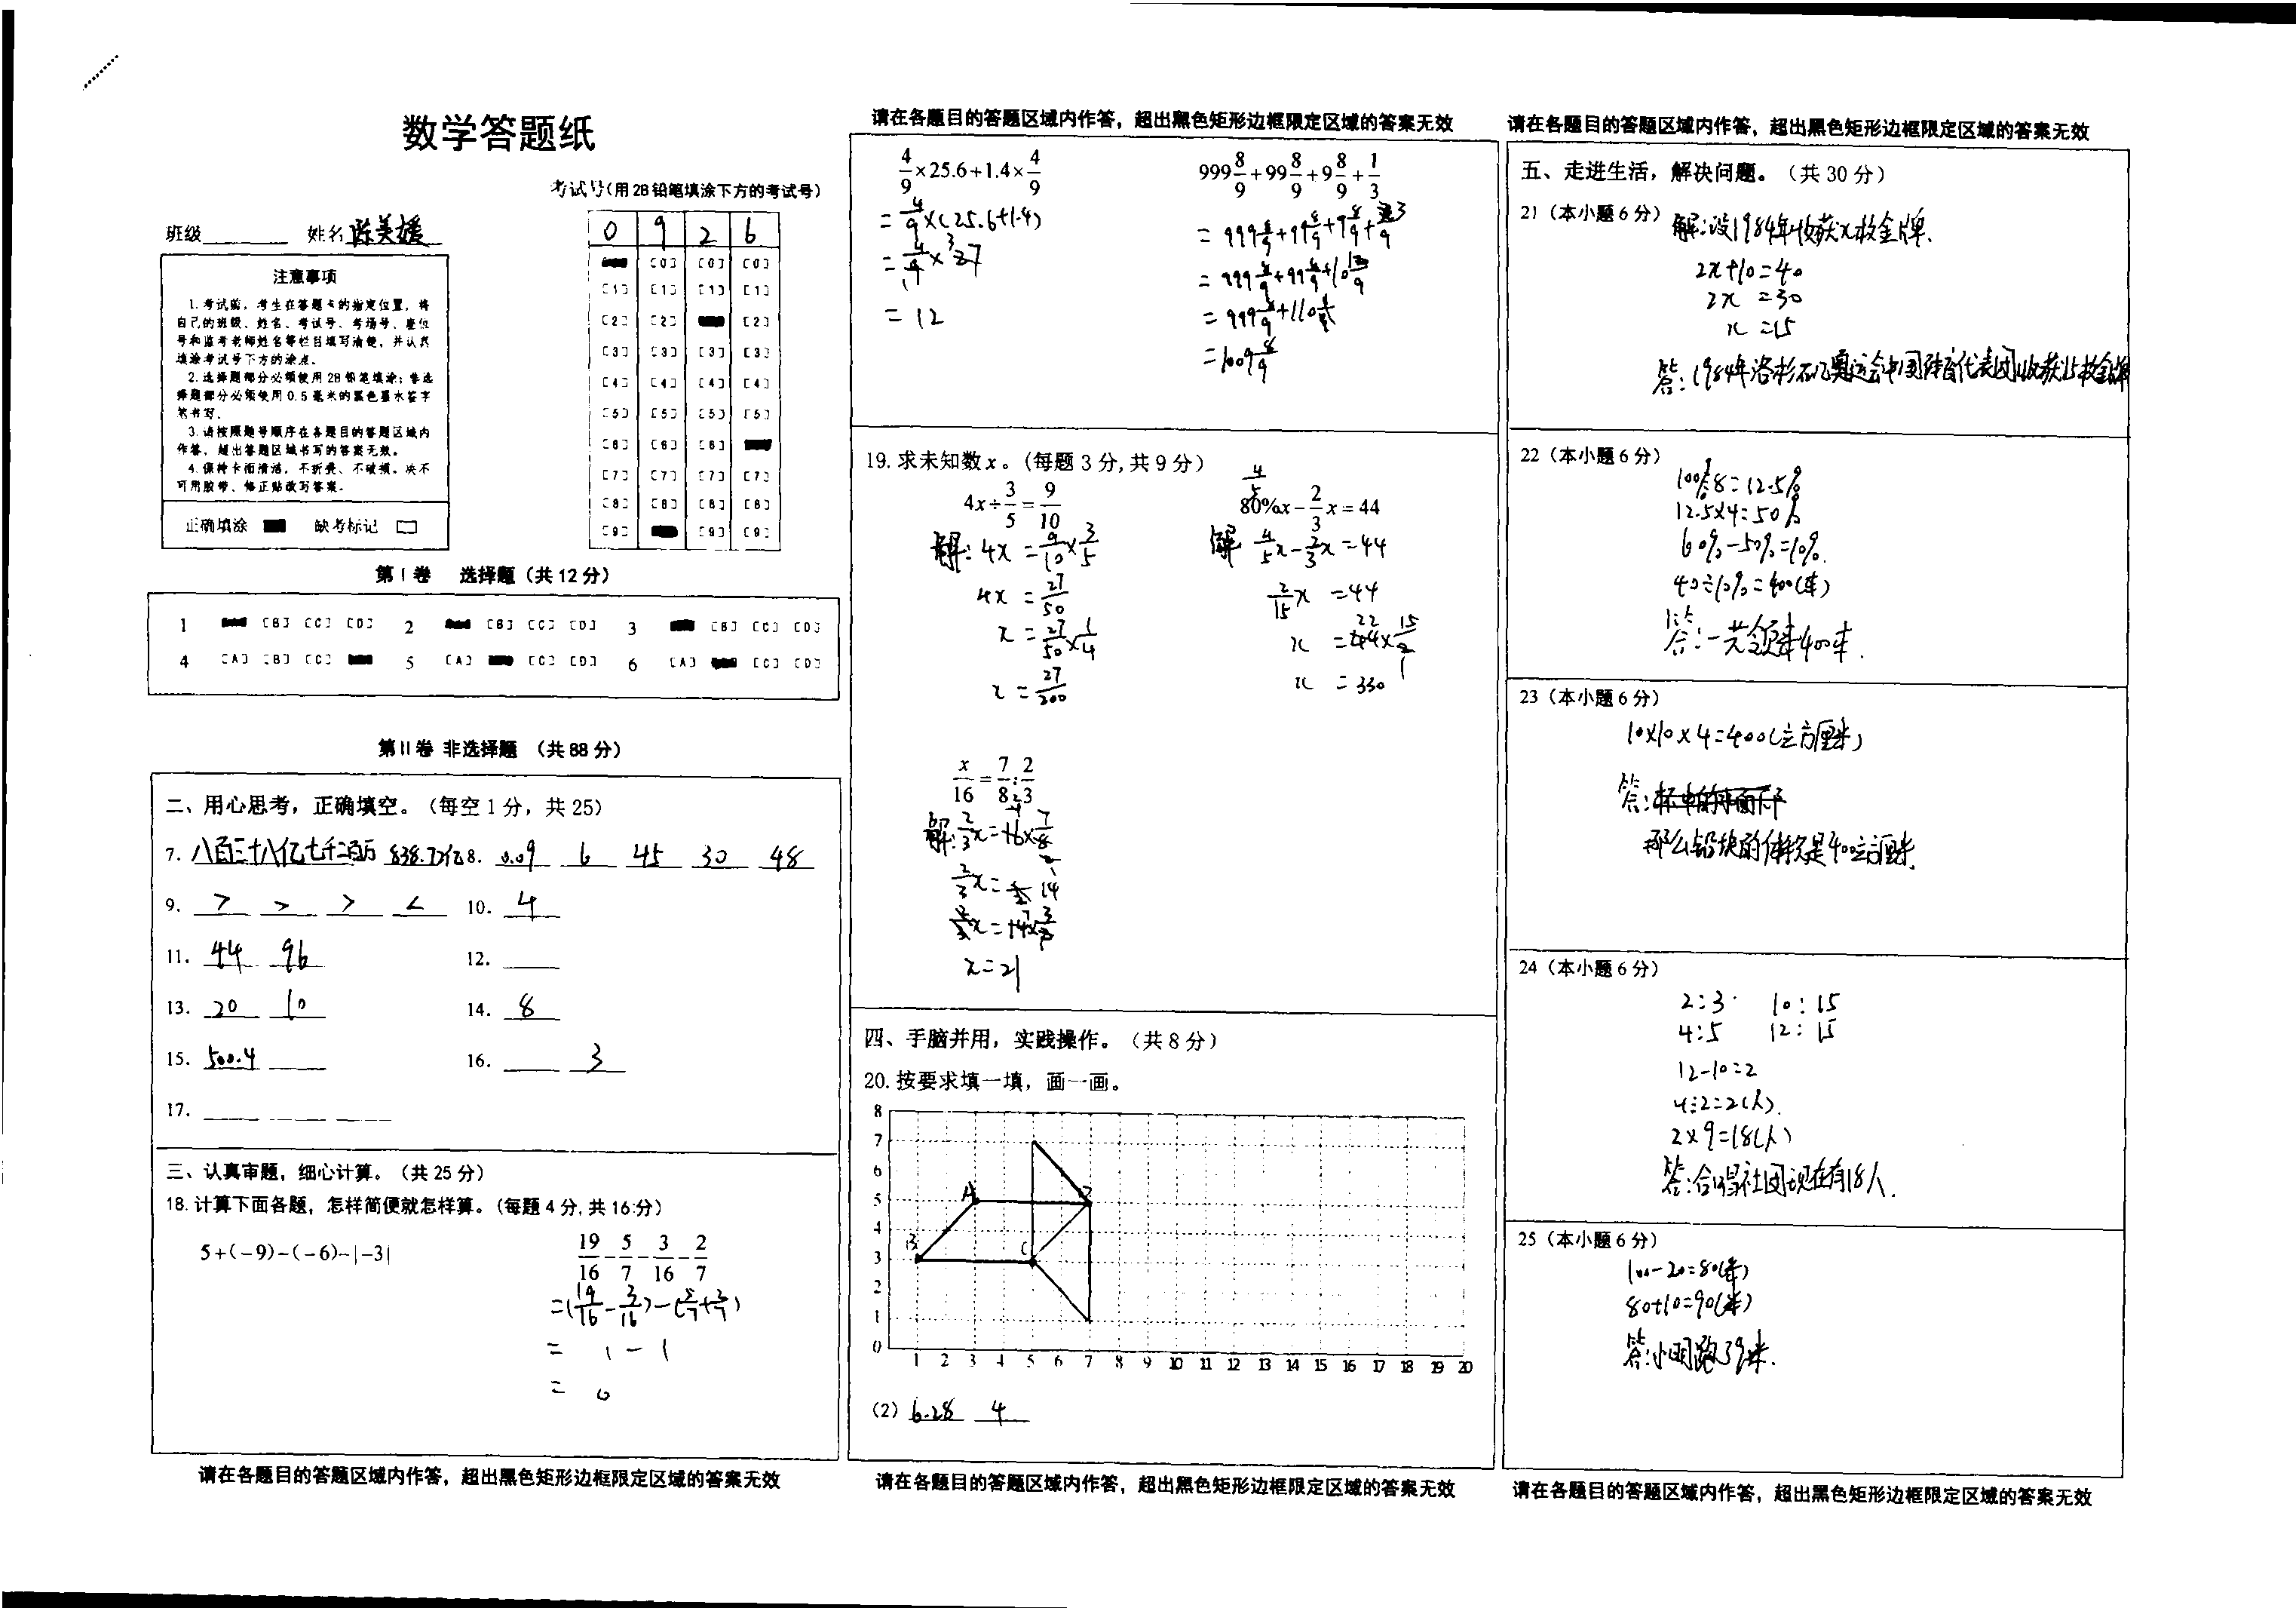 数学答题纸
考试号(用2B铅笔填涂下方的考试号)
班级 姓名 陈美媛
0 9 2 6
注意事项
1.考试前，考生在答题卡的指定位置，将
自己的班级、姓名、考试号、考场号、座位
号和监考老师姓名等栏目填写清楚，并认真
填涂考试号下方的涂点。
2.选择题部分必须使用2B铅笔填涂；非选
择题部分必须使用0.5毫米的黑色墨水签字
笔书写。
3.请按照题号顺序在各题目的答题区域内
作答，超出答题区域书写的答案无效。
4.保持卡面清洁，不折叠、不破损。决不
可用胶带、修正贴改写答案。
正确填涂 缺考标记
[0] [0] [0]
[1] [1] [1] [1]
[2] [2] [2]
[3] [3] [3] [3]
[4] [4] [4] [4]
[5] [5] [5] [5]
[6] [6] [6]
[7] [7] [7] [7]
[8] [8] [8] [8]
[9] [9] [9]
第Ⅰ卷 选择题（共12分）
1 [B] [C] [D] 2 [B] [C] [D] 3 [B] [C] [D]
4 [A] [B] [C] 5 [A] [C] [D] 6 [A] [C] [D]
第II卷 非选择题 （共88分）
二、用心思考，正确填空。（每空1分，共25）
7. 八百三十八亿七千二百万 838.72亿 8. 0.09 6 45 30 48
9. > > > < 10. 4
11. 44 96 12.
13. 20 10 14. 8
15. 500.4 16. 3
17.
三、认真审题，细心计算。（共25分）
18.计算下面各题，怎样简便就怎样算。（每题4分,共16分）
5+(-9)-(-6)-|-3|
19/16-5/7-3/16-2/7
=(19/16-3/16)-(5/7+2/7)
= 1-1
= 0
请在各题目的答题区域内作答，超出黑色矩形边框限定区域的答案无效
请在各题目的答题区域内作答，超出黑色矩形边框限定区域的答案无效
4/9×25.6+1.4×4/9
=4/9×(25.6+1.4)
=4/9×27
=12
999 8/9+99 8/9+9 8/9+1/3
=999 8/9+99 8/9+9 8/9+3/9
=1009 8/9
19.求未知数x。（每题3分,共9分）
4x÷3/5=9/10
解：4x=9/10×3/5
4x=27/50
x=27/50×1/4
x=27/200
80%x-2/3x=44
解 4/5x-2/3x=44
2/15x=44
x=44×15/2
x=330
x/16=7/8:2/3
解：2/3x=16×7/8
2/3x=14
x=14×3/2
x=21
四、手脑并用，实践操作。（共8分）
20.按要求填一填，画一画。
8
7
6
5
4
3
2
1
0
A
B
C
D
1 2 3 4 5 6 7 8 9 10 11 12 13 14 15 16 17 18 19 20
(2) 6.28 4
请在各题目的答题区域内作答，超出黑色矩形边框限定区域的答案无效
请在各题目的答题区域内作答，超出黑色矩形边框限定区域的答案无效
五、走进生活，解决问题。（共30分）
21（本小题6分）解：设1984年收获x枚金牌.
2x+10=40
2x=30
x=15
答：1984年洛杉矶奥运会中国体育代表团收获15枚金牌
22（本小题6分）
100%÷8=12.5%
12.5×4=50%
60%-50%=10%.
40÷10%=400(本)
答：一共领来400本.
23（本小题6分）
10×10×4=400(立方厘米)
答：
那么铅块的体积是400立方厘米.
24（本小题6分）
2:3 10:15
4:5 12:15
12-10=2
4÷2=2(人).
2×9=18(人)
答：合唱社团现在有18人.
25（本小题6分）
100-20=80(米)
80+10=90(米)
答：小明跑了90米.
请在各题目的答题区域内作答，超出黑色矩形边框限定区域的答案无效